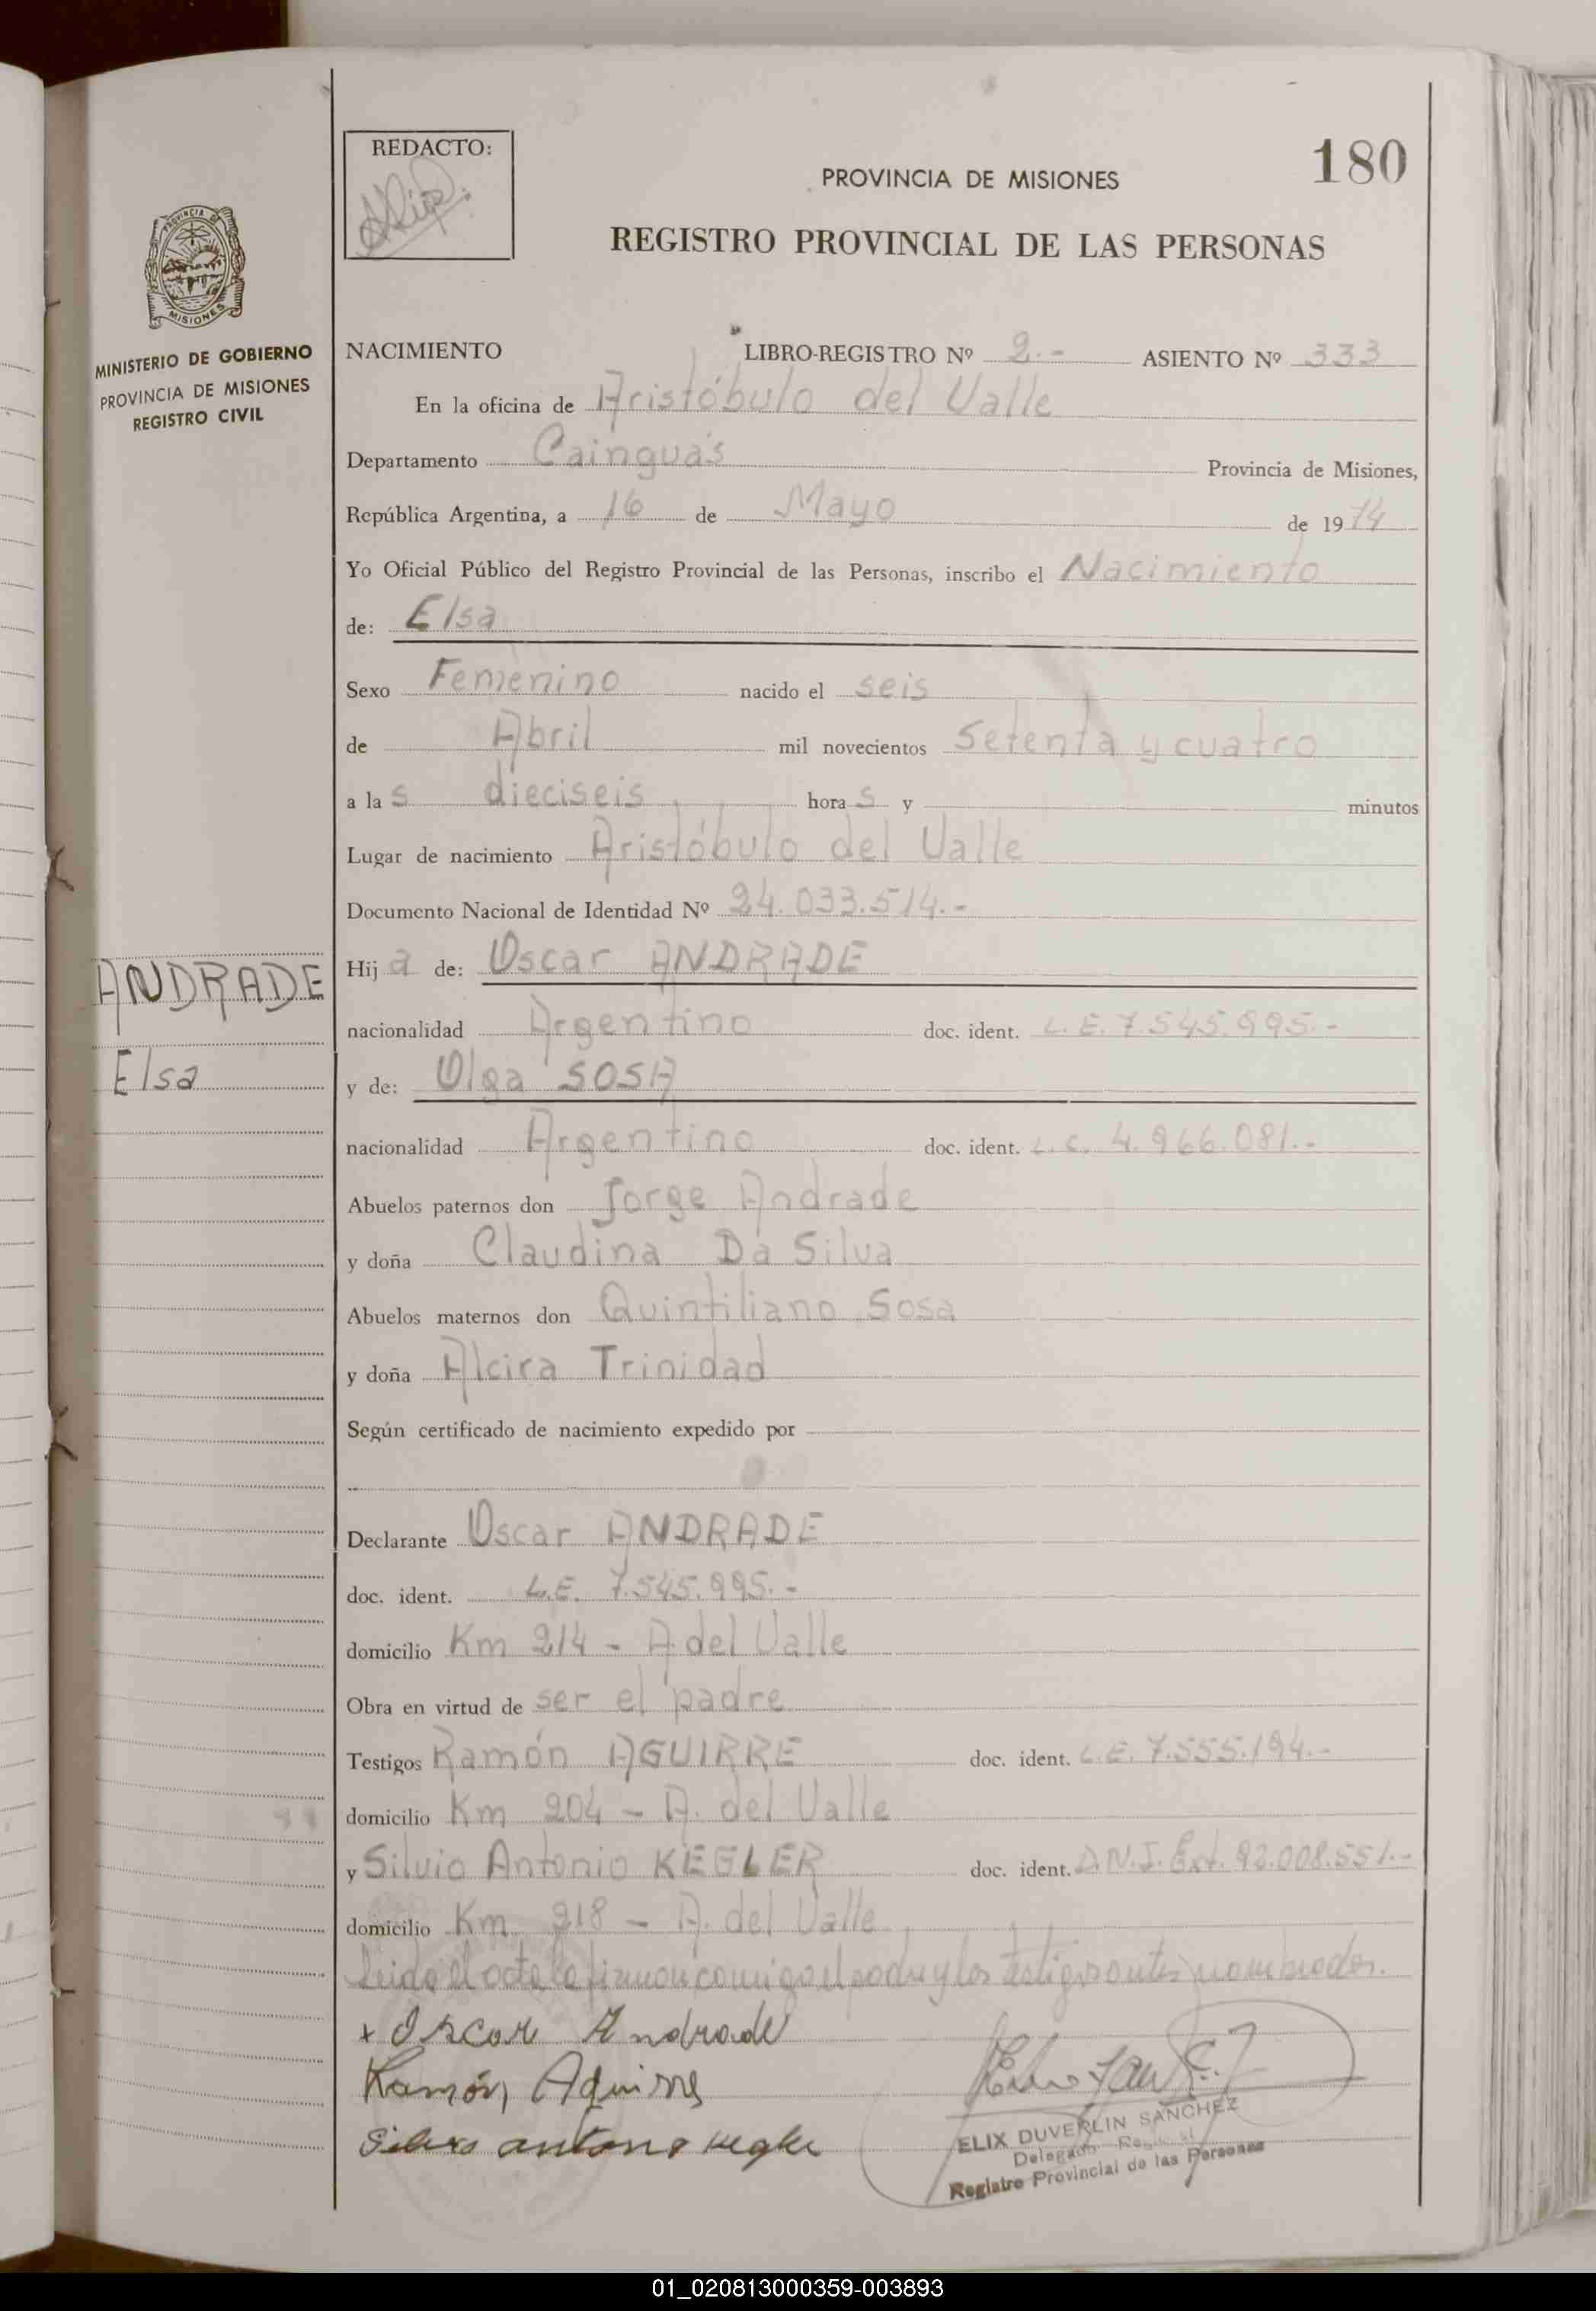 REDACTO:
180
PROVINCIA DE MISIONES
REGISTRO PROVINCIAL DE LAS PERSONAS
PROVINCIA DE
MISIONES
MINISTERIO DE GOBIERNO
PROVINCIA DE MISIONES
REGISTRO CIVIL
NACIMIENTO LIBRO-REGISTRO Nº 2.- ASIENTO Nº 333
En la oficina de Aristóbulo del Valle
Departamento Cainguás Provincia de Misiones,
República Argentina, a 16 de Mayo de 1974
Yo Oficial Público del Registro Provincial de las Personas, inscribo el Nacimiento
de: Elsa
Sexo Femenino nacido el seis
de Abril mil novecientos Setenta y cuatro
a las dieciseis horas y minutos
Lugar de nacimiento Aristóbulo del Valle
Documento Nacional de Identidad Nº 24.033.514.-
ANDRADE
Elsa
Hija de: Oscar ANDRADE
nacionalidad Argentino doc. ident. L.E. 7.545.995.-
y de: Olga SOSA
nacionalidad Argentino doc. ident. L.C. 4.966.081.-
Abuelos paternos don Jorge Andrade
y doña Claudina Da Silva
Abuelos maternos don Quintiliano Sosa
y doña Alcira Trinidad
Según certificado de nacimiento expedido por
Declarante Oscar ANDRADE
doc. ident. L.E. 7.545.995.-
domicilio Km 214 - A del Valle
Obra en virtud de ser el padre
Testigos Ramón AGUIRRE doc. ident. L.E. 7.555.194.-
domicilio Km 204 - A. del Valle
y Silvio Antonio KEGLER doc. ident. D.N.I. Ext. 92.008.551.-
domicilio Km 218 - A. del Valle
Leida el acta la firman conmigo el padre y los testigos antes nombrados.
x Oscar Andrade
Ramón Aguirre
Silvio antonio kegler
ELIX DUVERLIN SANCHEZ
Registro Provincial de las Personas
01_020813000359-003893